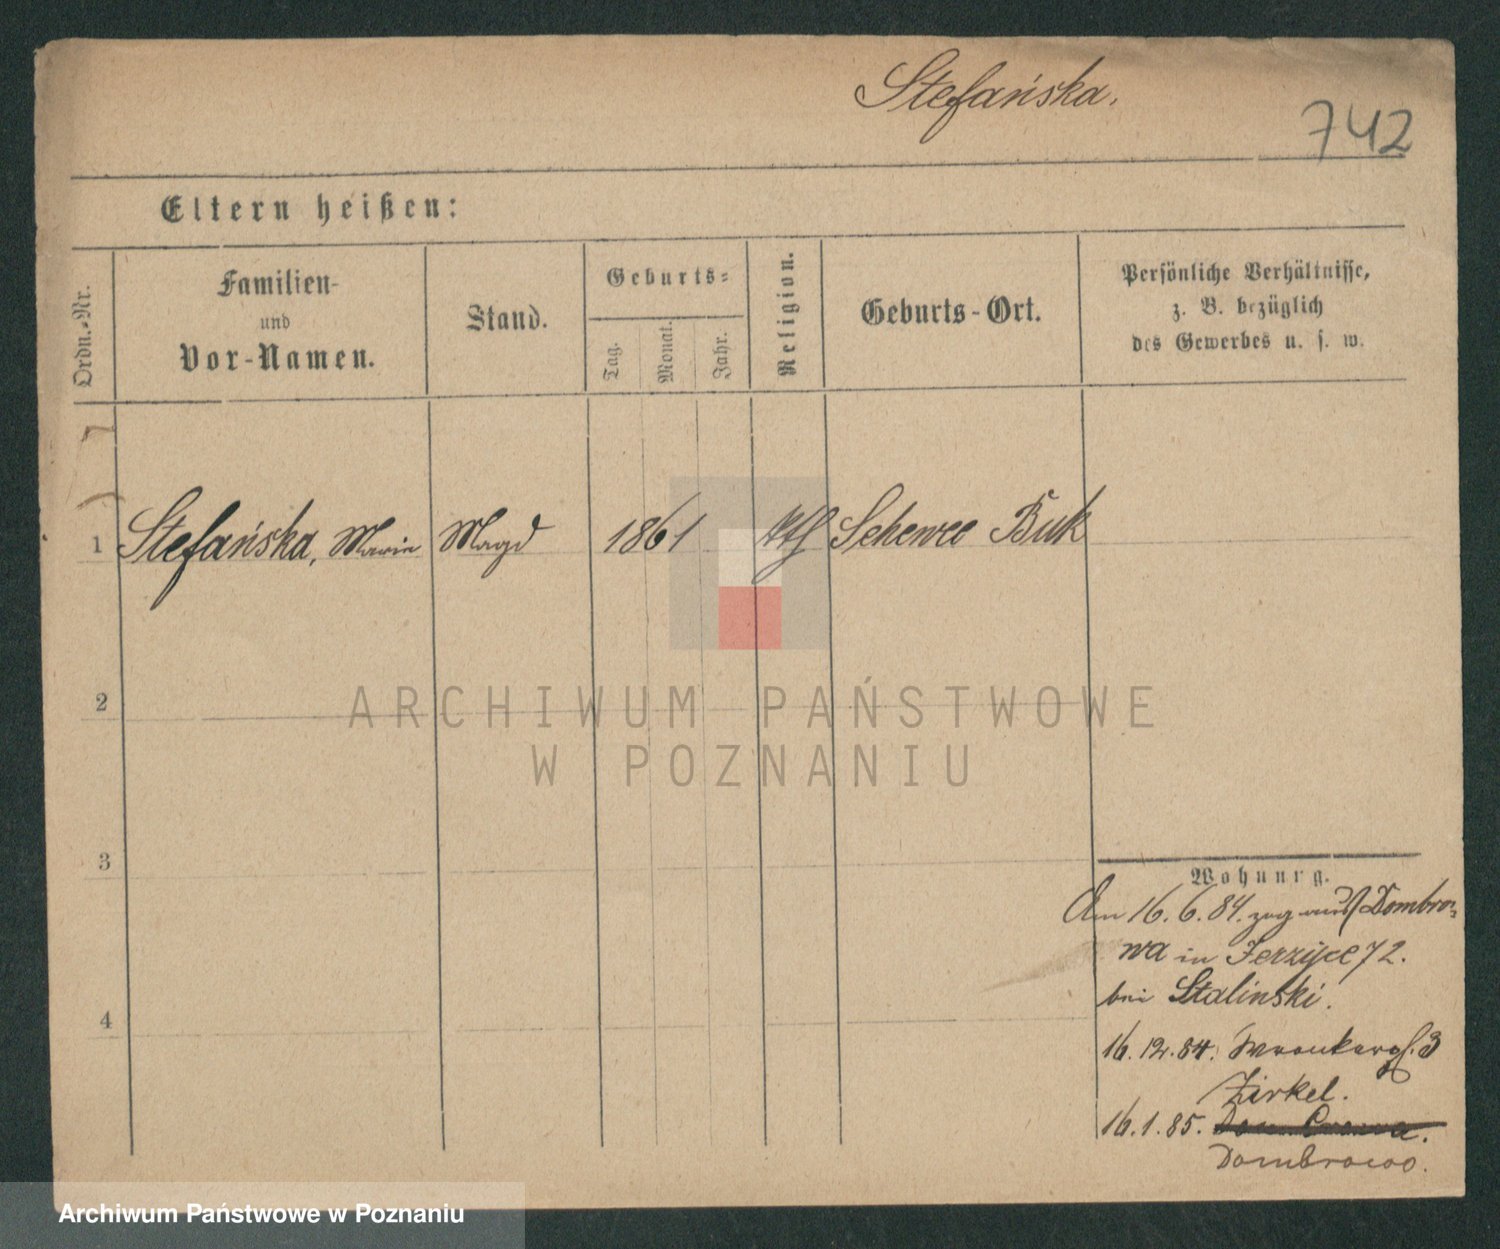 Stefańska.
742
Eltern heißen:
Ordn.-Nr.
Familien-
und
Vor-Namen.
Stand.
Geburts-
Tag.
Monat.
Jahr.
Religion.
Geburts-Ort.
Persönliche Verhältnisse,
z. B. bezüglich
des Gewerbes u. s. w.
1 Stefańska, Marie Magd 1861 kth Buk
2
3
4
ARCHIWUM PAŃSTWOWE
W POZNANIU
Wohnung.
Am 16.6.84. zog aus Dombro-
wa in Jerzyce 72.
bei Stalinski.
16.12.84. Wronkergs. 3
Zirkel.
16.1.85.
Dombrowo.
Archiwum Państwowe w Poznaniu